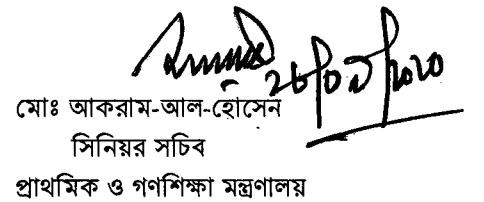 মোঃ আকরাম-আল-হোসেন
সিনিয়র সচিব
প্রাথমিক ও গণশিক্ষা মন্ত্রণালয়